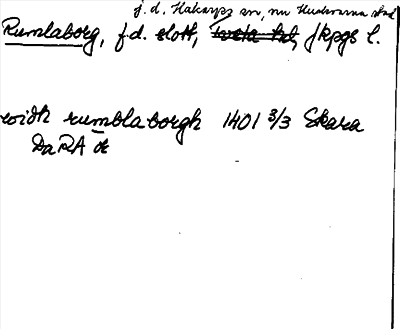 f.d. Hakarps sn, nu Huskvarna stad
Rumlaborg, f.d. slott, Tveta hd, Jkpgs l.
widh rumbla borgh 1401 3/3 Skara
DaRA or